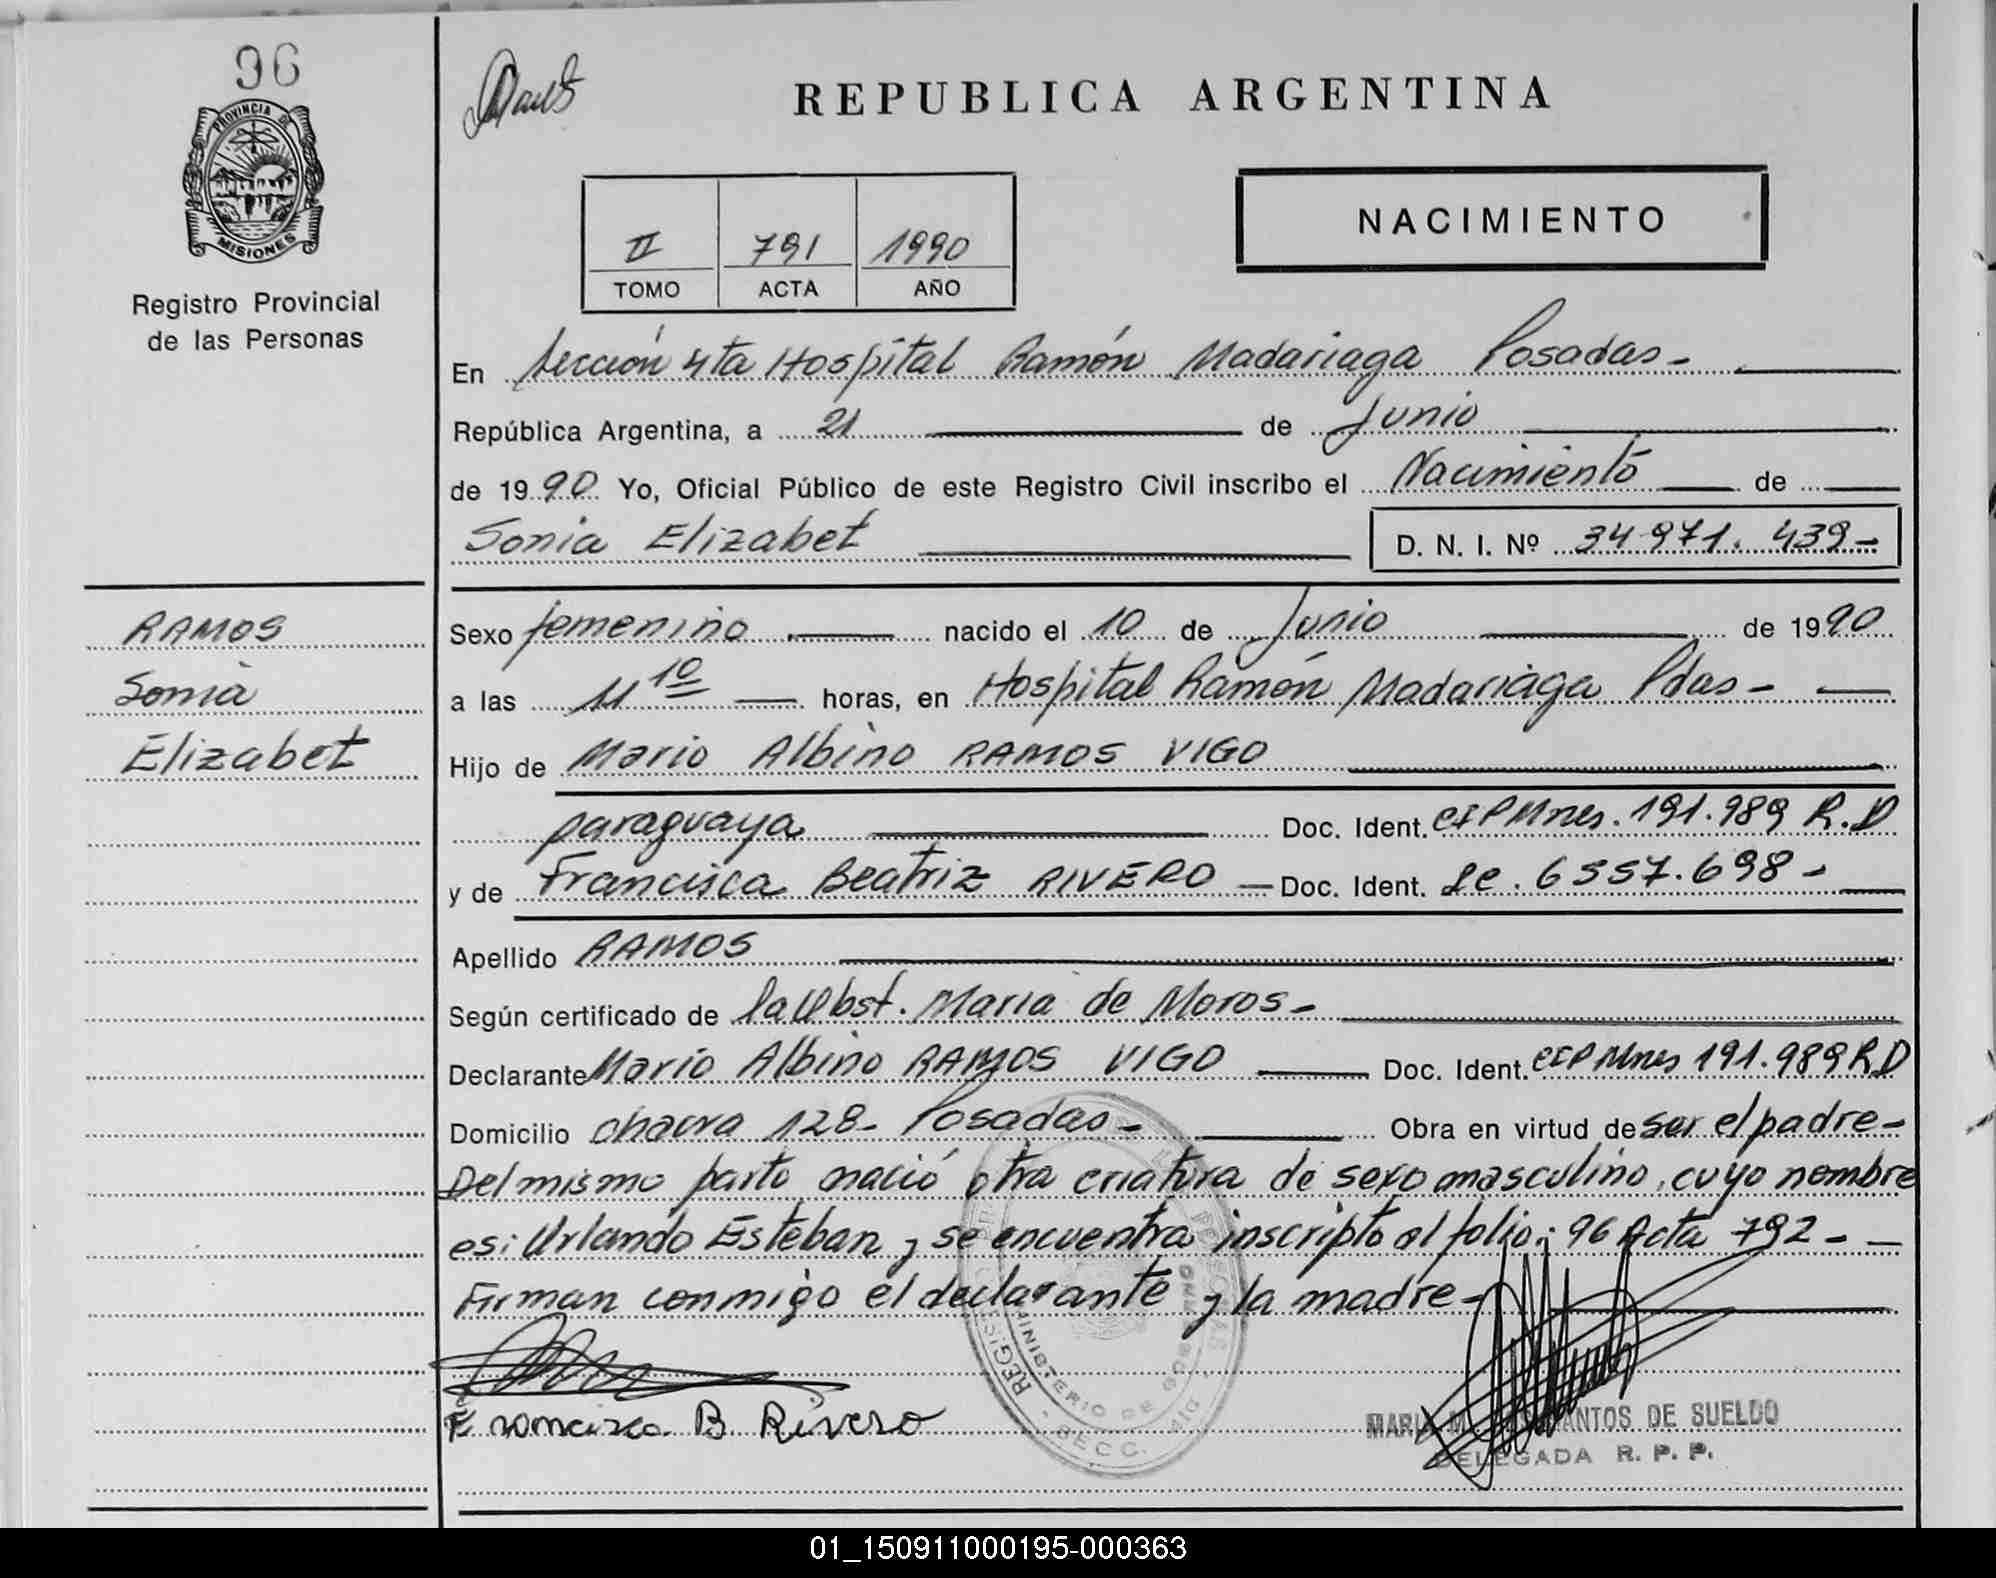 96
PROVINCIA DE
MISIONES
Registro Provincial
de las Personas
RAMOS
Sonia
Elizabet
REPUBLICA ARGENTINA
II 791 1990
TOMO ACTA AÑO
NACIMIENTO
En Sección 4ta Hospital Ramón Madariaga Posadas-
República Argentina, a 21 de Junio
de 1990 Yo, Oficial Público de este Registro Civil inscribo el Nacimiento de
Sonia Elizabet D. N. I. Nº 34.971.439-
Sexo femenino nacido el 10 de Junio de 1990
a las 11 10 horas, en Hospital Ramón Madariaga Pdas-
Hijo de Mario Albino RAMOS VIGO
paraguaya Doc. Ident. CIPMnes. 191.989 R.D
y de Francisca Beatriz RIVERO Doc. Ident. Lc. 6557.698-
Apellido RAMOS
Según certificado de la Obst. Maria de Moros-
Declarante Mario Albino RAMOS VIGO Doc. Ident. CIPMnes 191.989 R.D
Domicilio chacra 128- Posadas- Obra en virtud de ser el padre-
Del mismo parto nació otra criatura de sexo masculino, cuyo nombre
es: Orlando Esteban y se encuentra inscripto al folio: 96 Acta 792-
Firman conmigo el declarante y la madre-
Francisca B Rivero
REGIS
MINISTERIO DE GOBIERNO
SECC.
MARIA M. SANTOS DE SUELDO
DELEGADA R. P. P.
01_150911000195-000363